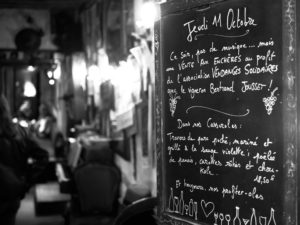 Jeudi 11 Octobre
Ce soir, pas de musique... mais
une VENTE aux ENCHÈRES au profit
de l'association VENDANGES SOLIDAIRES
avec le vigneron Bertrand Jousset.
Dans nos Casseroles :
Travers de porc poché, mariné et
grillé à la sauge violette ; poêlée
de panais, carottes rôties et chou-
Kale. 18,50€
Et toujours, nos